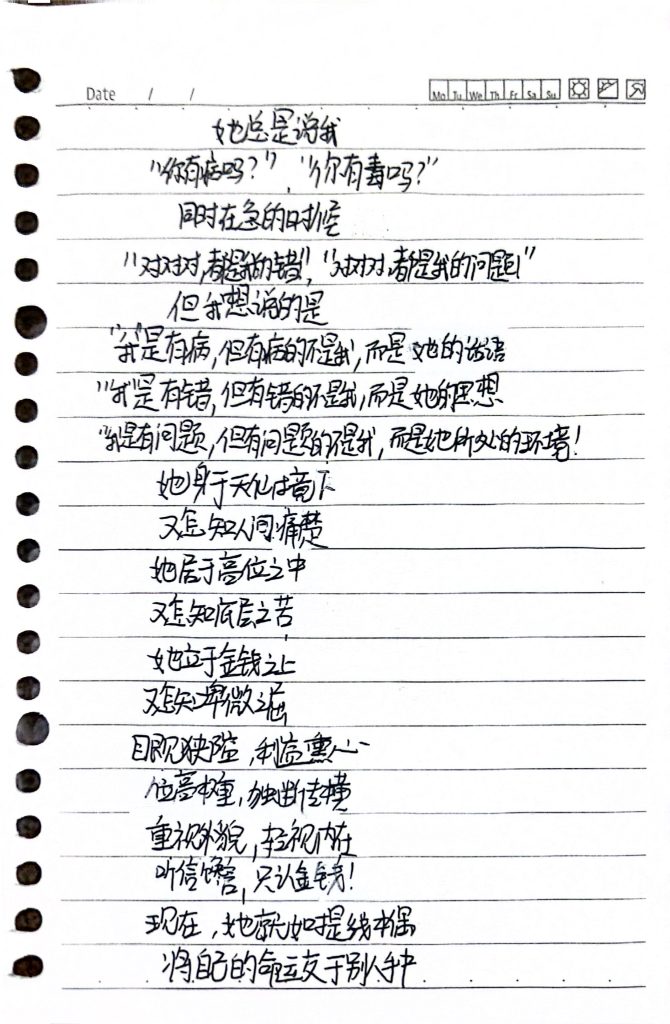 Date / /
Mo Tu We Th Fr Sa Su
她总是说我
"你有病吗?"，"你有毒吗?"
同时在急的时候
"对对对,都是我的错","对对对,都是我的问题!"
但我想说的是
"我"是有病,但有病的不是我,而是她的话语
"我"是有错,但有错的不是我,而是她的思想
"我是有问题,但有问题的不是我,而是她所处的环境!
她身于天仙境下
又怎知人间痛楚
她居于高位之中
又怎知底层之苦
她立于金钱之上
又怎知卑微之
目艮见狭隘,利益熏心
位高权重,独断专横
重视外貌,轻视内在
听信谗言,只认金钱!
现在,她就如提线木偶
将自己的命运交于别人手中